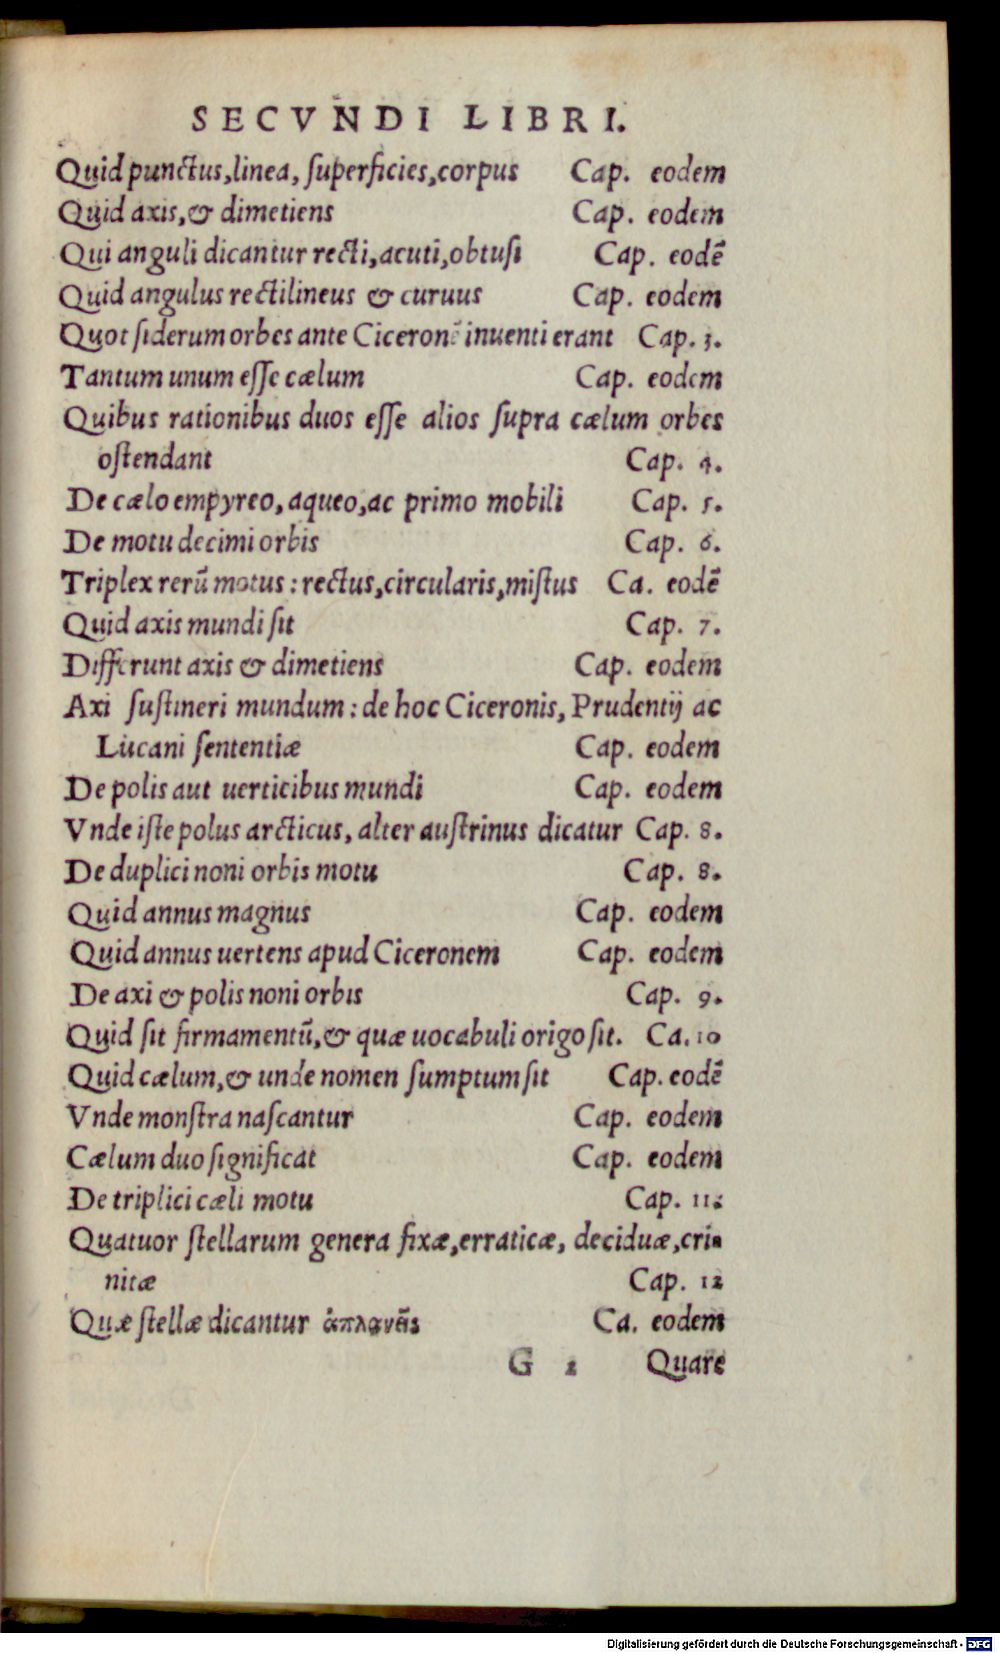 SECVNDI LIBRI.
Quid punctus, linea, superficies, corpus Cap. eodem
Quid axis, & dimetiens Cap. eodem
Qui anguli dicantur recti, acuti, obtusi Cap. eodē
Quid angulus rectilineus & curuus Cap. eodem
Quot siderum orbes ante Ciceronē inuenti erant Cap. 3.
Tantum unum esse cælum Cap. eodem
Quibus rationibus duos esse alios supra cælum orbes
ostendant Cap. 4.
De cælo empyreo, aqueo, ac primo mobili Cap. 5.
De motu decimi orbis Cap. 6.
Triplex rerū motus: rectus, circularis, mistus Ca. eodē
Quid axis mundi sit Cap. 7.
Differunt axis & dimetiens Cap. eodem
Axi sustineri mundum: de hoc Ciceronis, Prudentij ac
Lucani sententiæ Cap. eodem
De polis aut uerticibus mundi Cap. eodem
Vnde iste polus arcticus, alter austrinus dicatur Cap. 8.
De duplici noni orbis motu Cap. 8.
Quid annus magnus Cap. eodem
Quid annus uertens apud Ciceronem Cap. eodem
De axi & polis noni orbis Cap. 9.
Quid sit firmamentū, & quæ uocabuli origo sit. Ca. 10
Quid cælum, & unde nomen sumptum sit Cap. eodē
Vnde monstra nascantur Cap. eodem
Cælum duo significat Cap. eodem
De triplici cæli motu Cap. 11.
Quatuor stellarum genera fixæ, erraticæ, deciduæ, cri-
nitæ Cap. 12
Quæ stellæ dicantur ἀπλανεῖς Ca. eodem
G 2 Quare
Digitalisierung gefördert durch die Deutsche Forschungsgemeinschaft - DFG